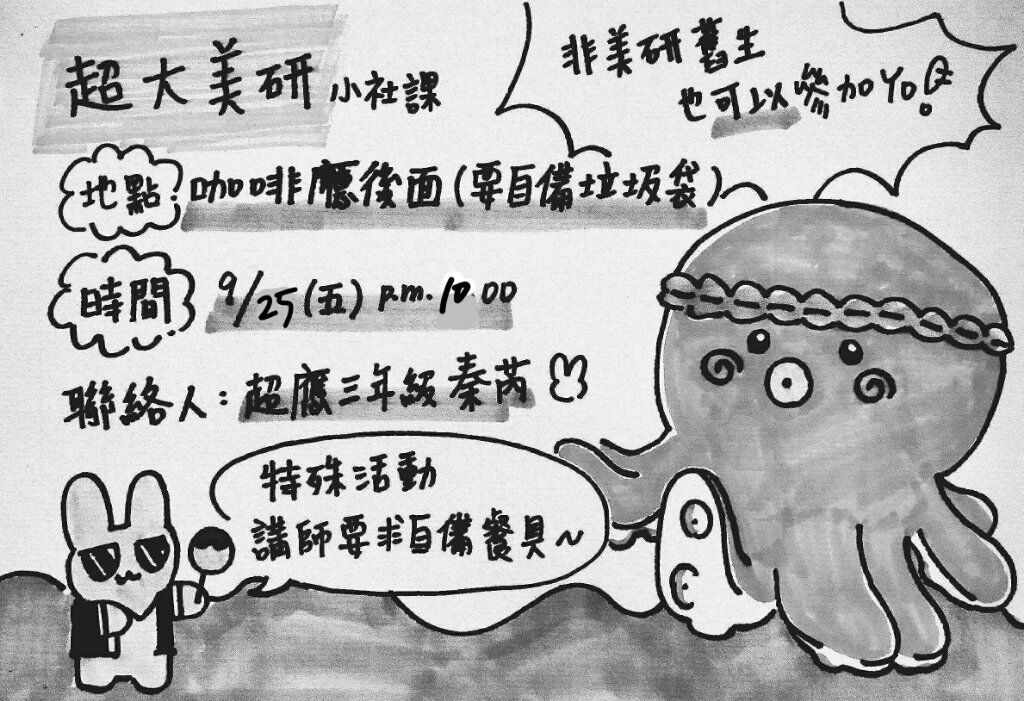 超大美研 小社課
非美研舊生
也可以參加YO!
地點: 咖啡廳後面(要自備垃圾袋)
時間: 9/25(五) p.m. 10:00
聯絡人: 超鷹三年級 秦芮
特殊活動
講師要求自備餐具~